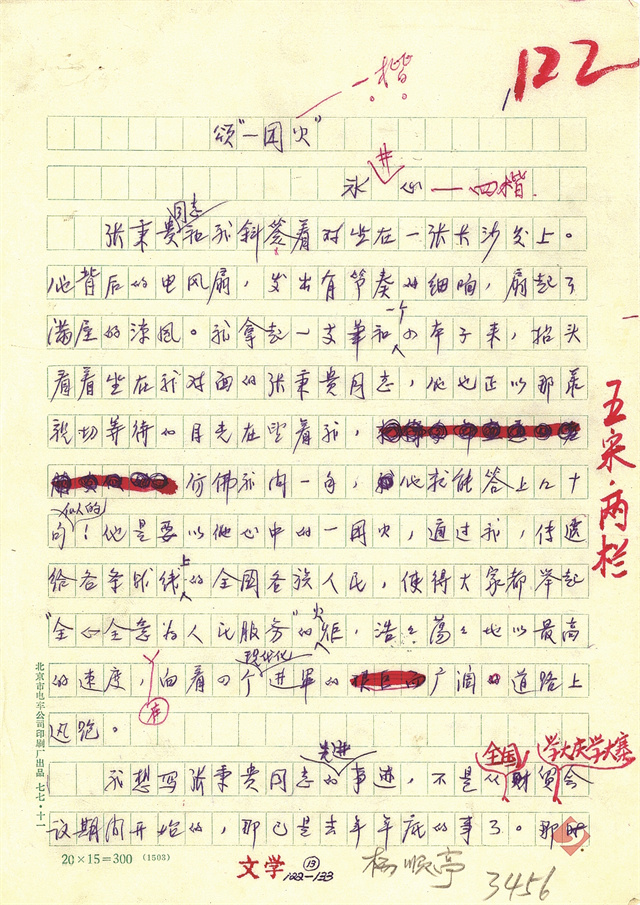 一楷
122
颂“一团火”
冰心 — 四楷
井
张秉贵同志和我斜着对坐在一张大沙发上。
他背后的电风扇，发出有节奏的细响，扇起了
满屋的凉风。我拿起一支笔和一个小本子来，抬头
看着坐在我对面的张秉贵同志，他也正以那最
亲切等待的目光在望着我，
仿佛我问一句，他就能答上几十
句似的！他是要以他心中的一团火，通过我，传递
给各条战线上的全国各族人民，使得大家都举起
“全心全意为人民服务”的火炬，浩浩荡荡地以最高
的速度，在向着四个现代化进军的广阔道路上
迅跑。
我想写张秉贵同志的先进事迹，不是从全国财贸学大庆学大寨会
议期间开始的，那已是去年年底的事了。那时
五宋·两栏
北京市电车公司印刷厂出品 七七·十一
20×15=300 (1503)
文学 ⑬
122—133
杨顺亭
3456